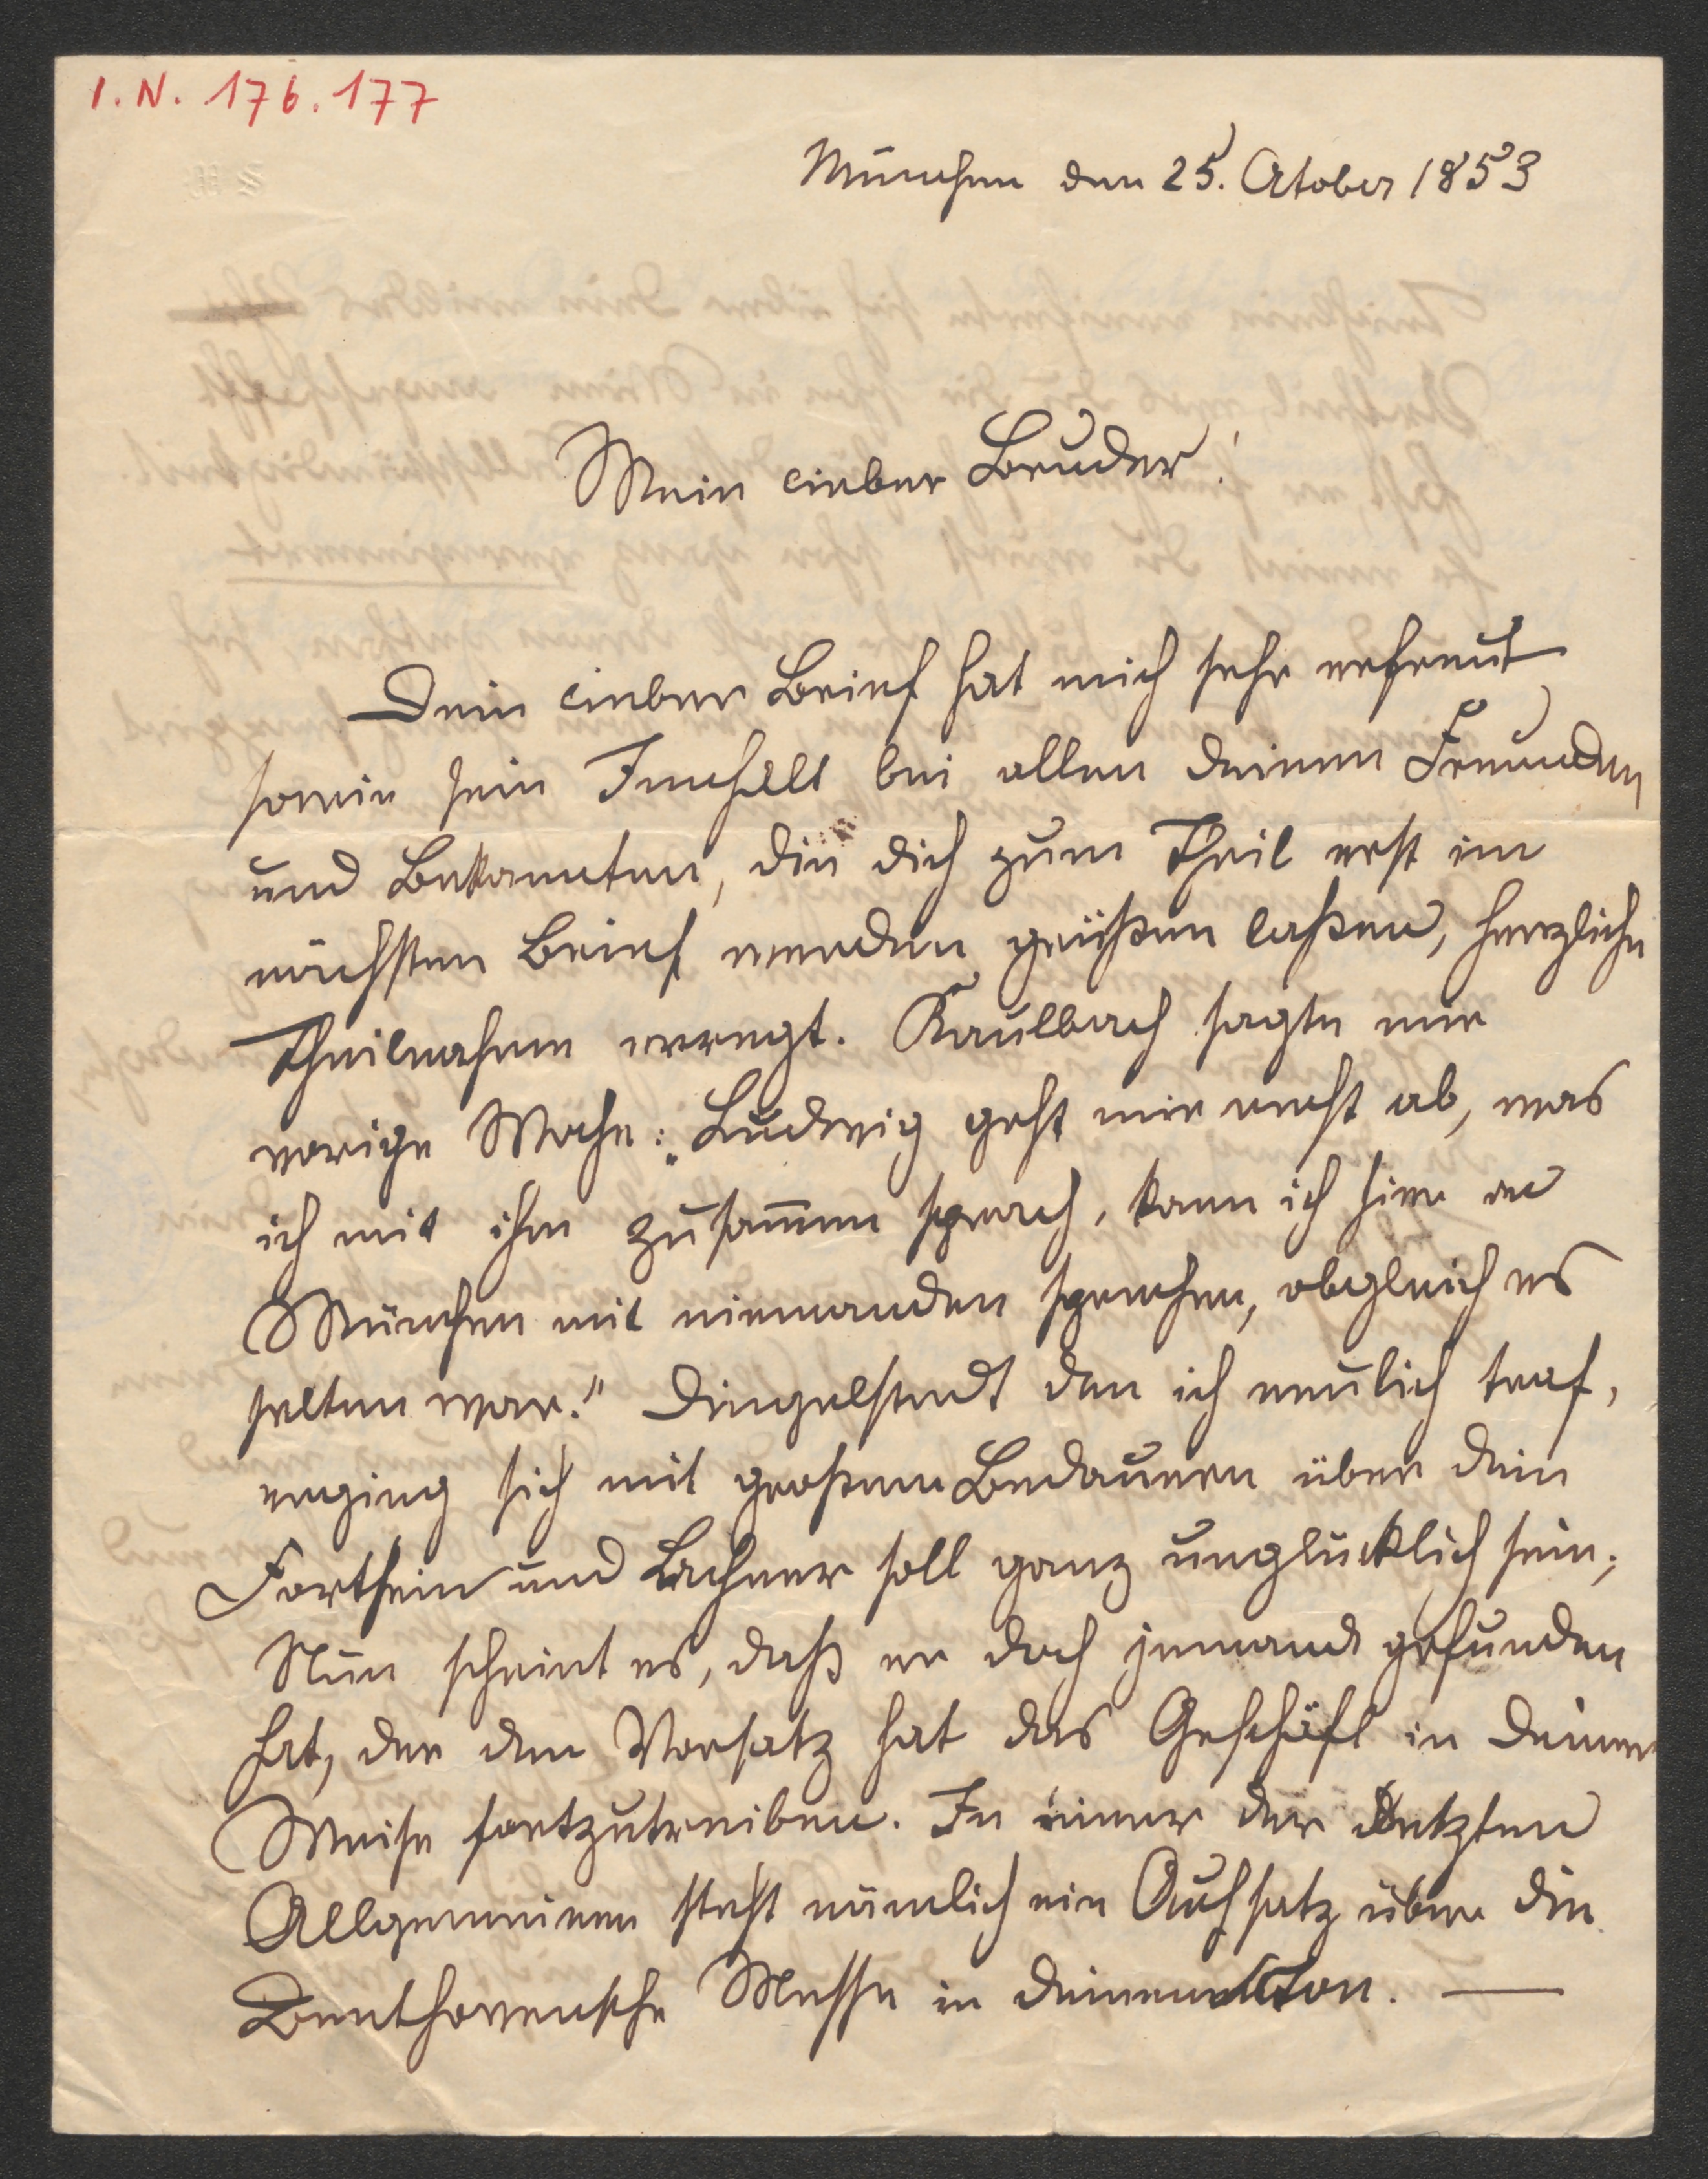 I.N. 176.177
München den 25. October 1853
Mein lieber Bruder!
Dein lieber Brief hat mich sehr erfreut
sowie sein Innhalt bei allen deinen Freunden
und Bekannten, die dich zum Theil erst im
nächsten Brief werden grüßen laßen, herzliche
Theilnahme erregt. Kaulbach sagte mir
vorige Woche: „Ludwig geht mir recht ab, was
ich mit ihm zusammen sprach, kann ich hier in
München mit niemanden sprechen, obgleich es
selten war." Dingelstedt den ich neulich traf,
erging sich mit großem Bedauern über dein
Fortsein und Lachner soll ganz unglücklich sein;
Nun scheint es, daß er doch jemand gefunden
hat, der den Vorsatz hat das Geschäft in deiner
Weise fortzutreiben. In einer der letzten
Allgemeinen steht nämlich ein Aufsatz über die
Beethovensche Messe in deinem Ton. —